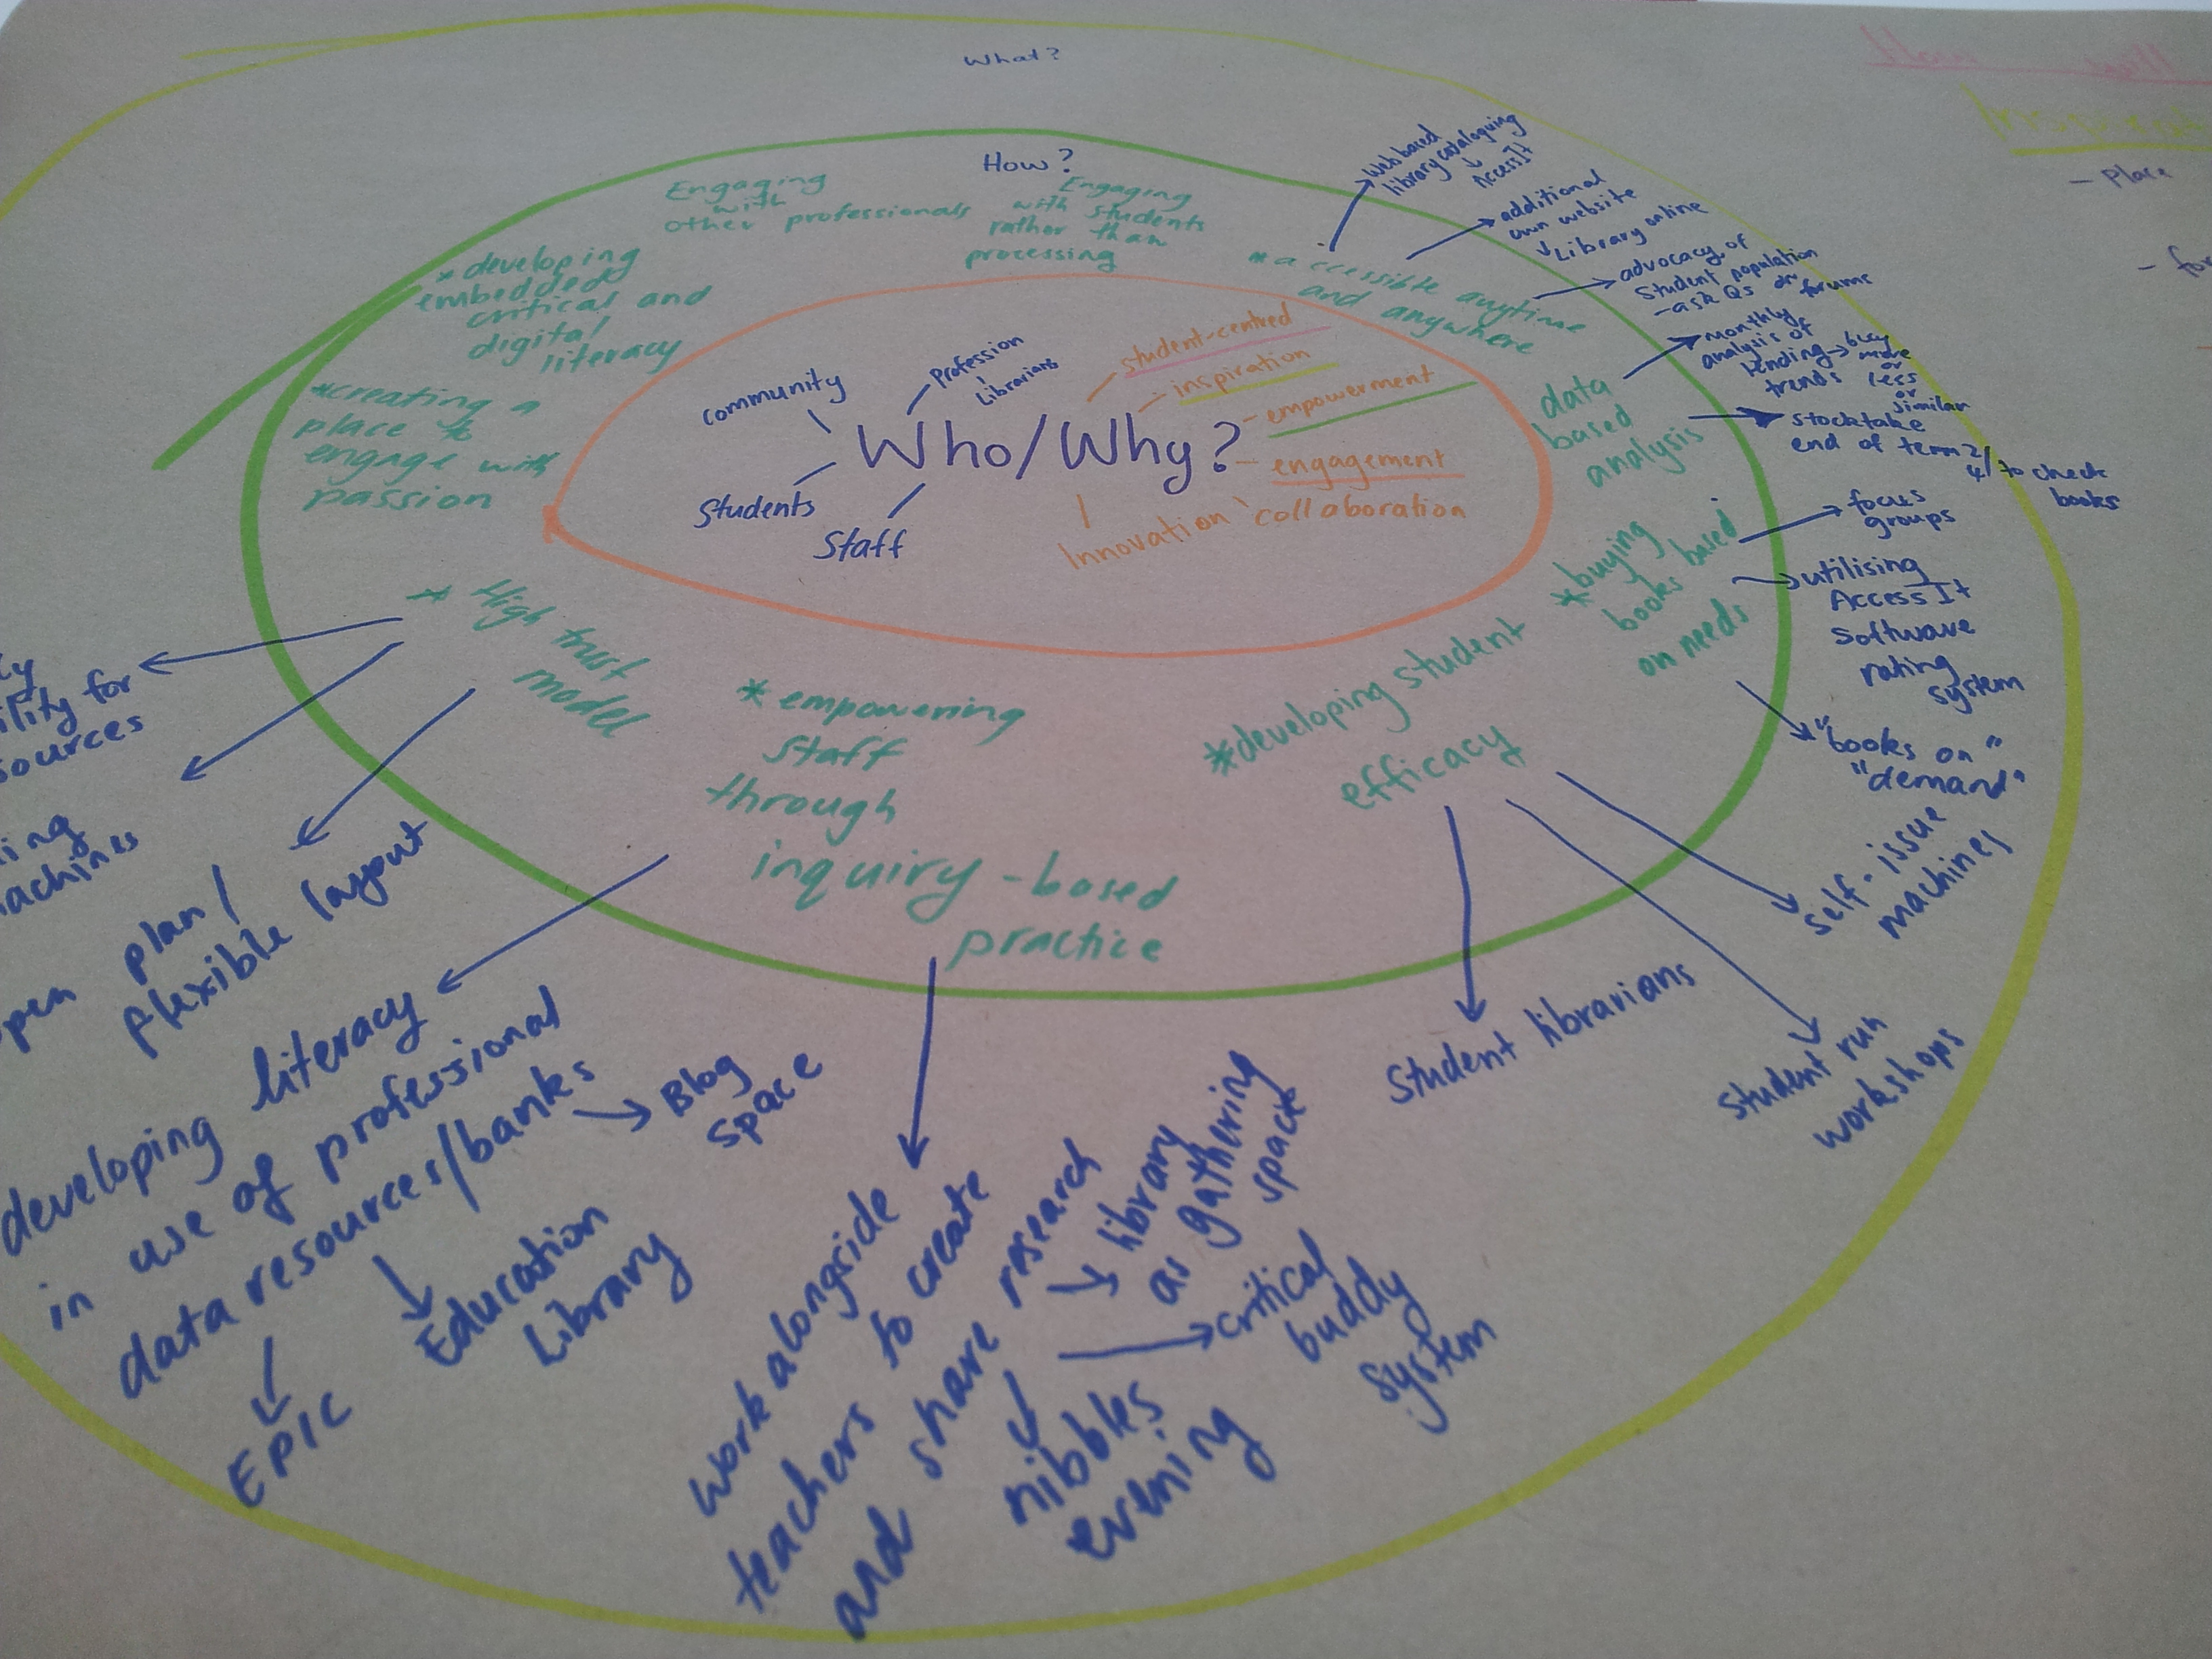 What?
How?
Engaging
with
other professionals
Engaging
with students
rather than
processing
* developing
embedded
critical and
digital
literacy
*creating a
place to
engage with
passion
* accessible anytime
and anywhere
Web based
library cataloguing
AccessIt
additional
own website
Library online
advocacy of
Student population
- ask Qs on
forums
data
based
analysis
monthly
analysis of
lending
trends
buy
more
or
less
or
similar
stocktake
end of term 2/
4 to check
books
Who/Why?
community
Profession
Librarians
Students
Staff
student-centred
- inspiration
- empowerment
- engagement
collaboration
Innovation
*buying
books based
on needs
focus
groups
utilising
AccessIt
Software
rating
system
"books on"
"demand"
* High trust
model
for
open plan/
flexible layout
* empowering
Staff
through
inquiry-based
practice
*developing student
efficacy
self-issue
machines
Student run
workshops
Student librarians
developing literacy
in use of professional
data resources/banks
Blog
Space
Education
Library
EPIC
work alongside
teachers to create
and share research
library
as gathering
space
critical
buddy
system
nibbles
evening
- Place